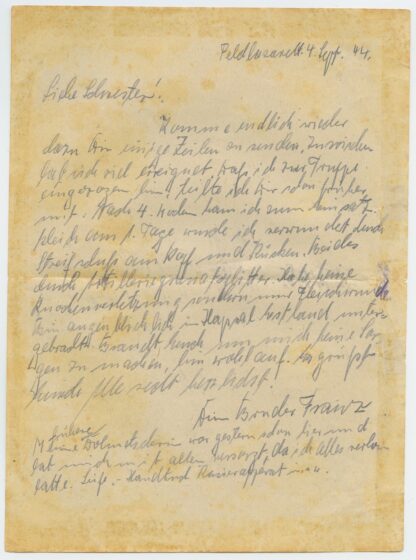 Feldlazarett 4. Sept. 44.
Liebe Schwester!
Komme endlich wieder
dazu Dir einige Zeilen zu senden. Inzwischen
hat sich viel ereignet. Daß ich zur Truppe
eingezogen bin, teilte ich Dir schon früher
mit. Nach 4. Wochen kam ich zum Einsatz
gleich am 1. Tage wurde ich verwundet durch
Streifschuß am Kopf und Rücken. Beides
durch Artilleriegranatsplitter. Habe keine
Knochenverletzung sondern nur Fleischwunde
Bin augenblicklich in Lettland unter-
gebracht. Braucht Euch um mich keine Sor-
gen zu machen, bin wohlauf. Es grüßt
Alle recht herzlichst!
Dein Bruder Franz
Meine frühere Dolmetscherin war gestern schon hier und
hat mich mit allem versorgt, da ich Alles verloren
hatte. Seife - Handtuch Rasierapparat u.s.w.